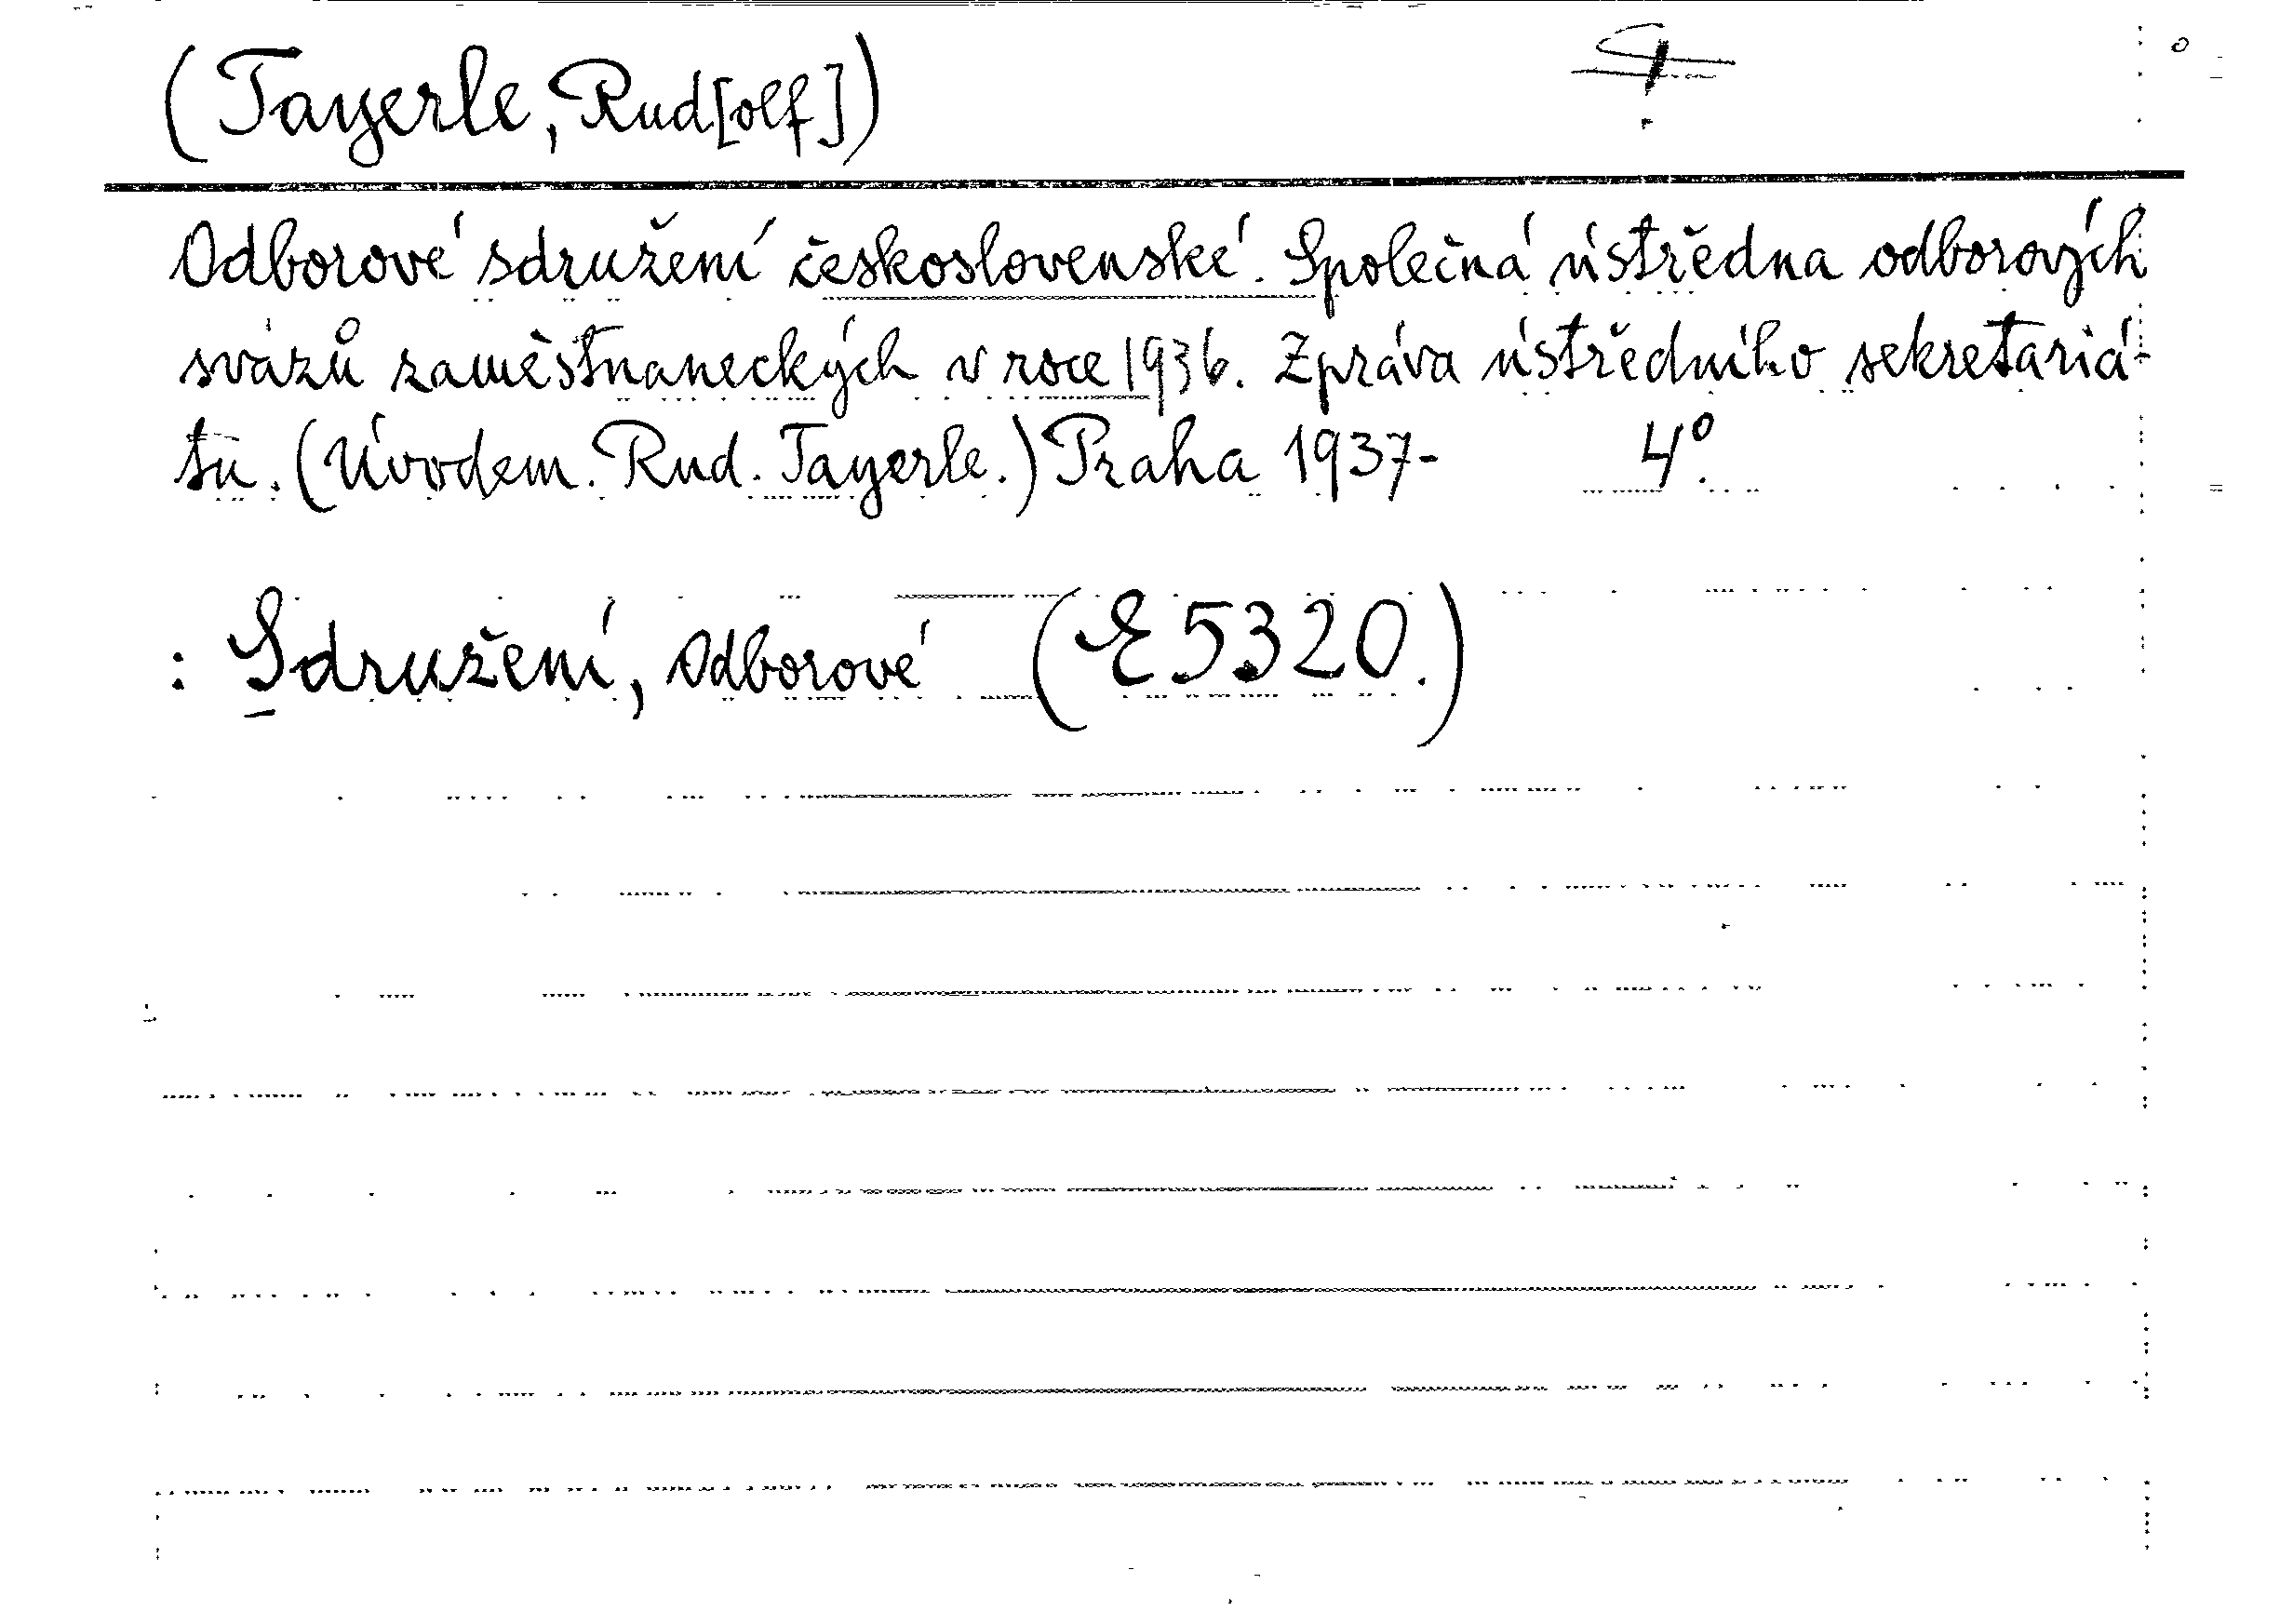 (Tayerle, Rud[olf])
Odborové sdružení československé. Společná ústředna odborových
svazů zaměstnaneckých v roce 1936. Zpráva ústředního sekretariá-
tu. (Úvodem. Rud. Tayerle.) Praha 1937- 4°.
: Sdružení, Odborové (E 5320.)